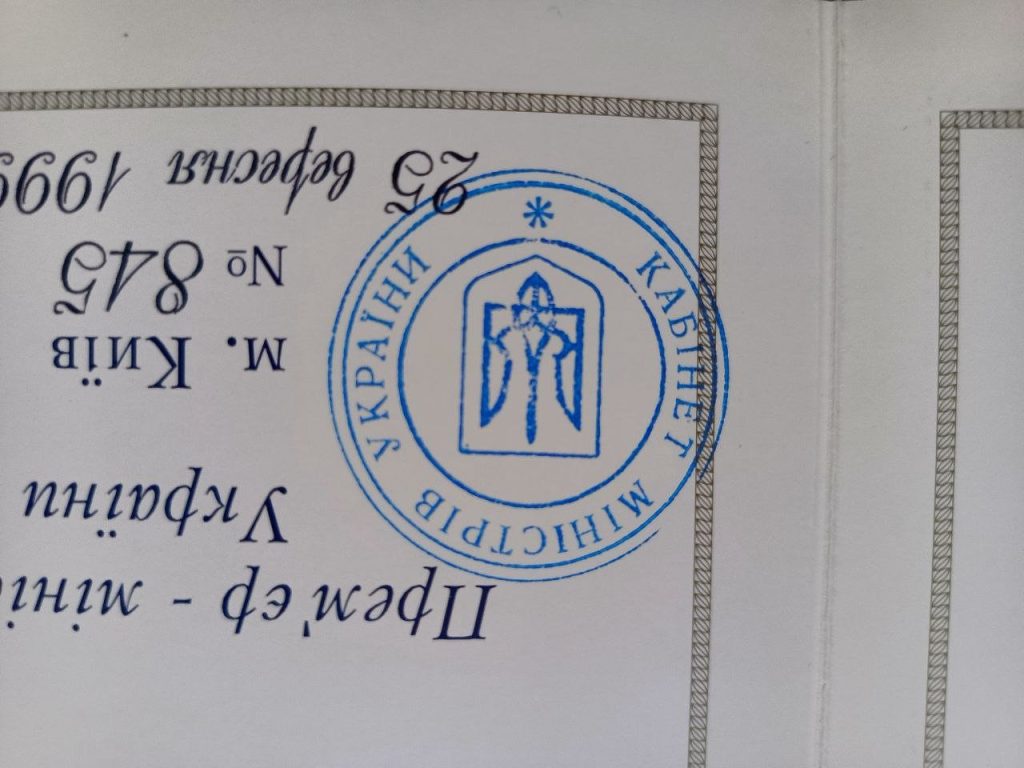 Прем'єр - міні
України
м. Київ
№ 845
25 вересня 1999
КАБІНЕТ МІНІСТРІВ УКРАЇНИ *